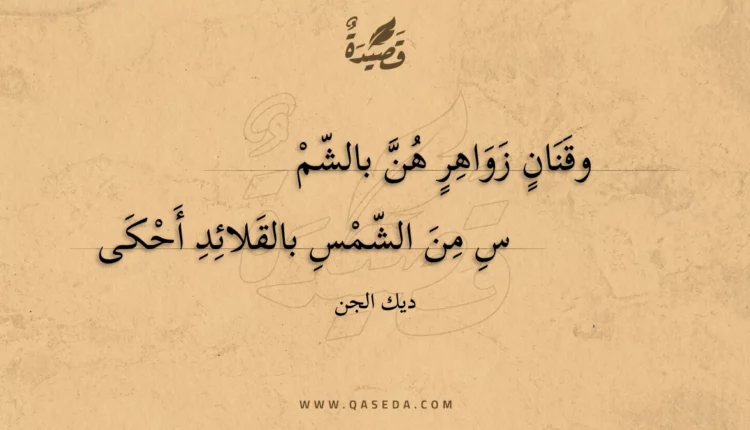 قَصِيْدَةٌ
وقَنَانٍ زَوَاهِرٍ هُنَّ بالشّمْ
سِ مِنَ الشّمْسِ بالقَلائِدِ أَحْكَى
ديك الجن
WWW.QASEDA.COM